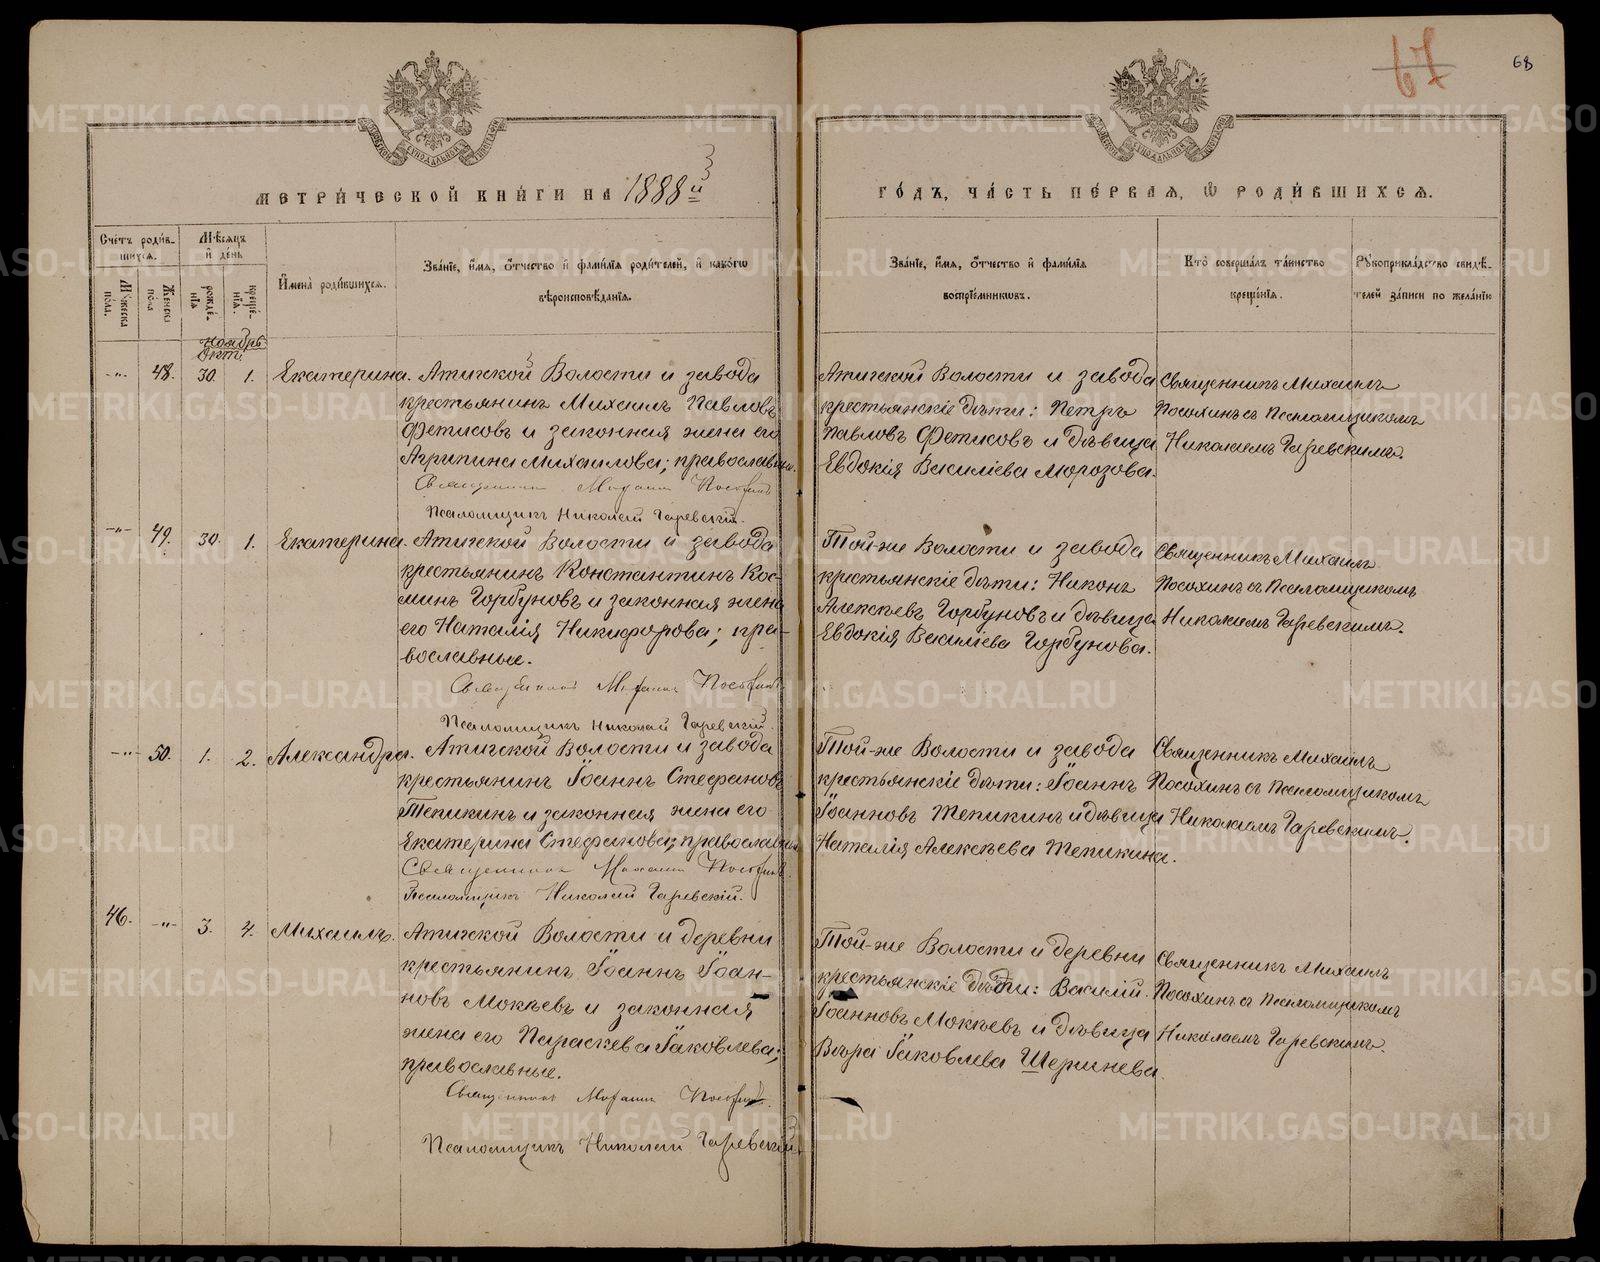 67
68
МЕТРИ́ЧЕСКОЙ КНИ́ГИ НА 1888й
ГО́ДЪ, ЧА́СТЬ ПЕ́РВАЯ, Ѡ РОДИ́ВШИХСЯ.
Сче́тъ роди́в-
шихся.
Мужеска по́ла.
Женска по́ла
Мѣ́сяцъ
и де́нь
рожде́-
нїя
креще́-
нїя.
И́мена̀ роди́вшихся.
Зва́нїе, и́мя, о́тчество и фами́лїя роди́телей, и како́гѡ
вѣроисповѣ́данїя.
Зва́нїе, и́мя, о́тчество и фами́лїя
воспрїе́мникѡвъ.
Кто̀ соверша́лъ та́инство
креще́нїя.
Рꙋкоприкла́дство свидѣ́-
телей за́писи по жела́нїю
Ноябрь
Окт.
-"- 48. 30. 1. Екатерина.
Атигской Волости и завода
крестьянинъ Михаилъ Павловъ
Фетисовъ и законная жена его
Агрипина Михаилова; православные.
Священникъ Михаилъ Посохинъ
Псаломщикъ Николай Гаревскій.
Атигской Волости и завода
крестьянскіе дѣти: Петръ
Павловъ Фетисовъ и дѣвица
Евдокія Василіева Морозова.
Священникъ Михаилъ
Посохинъ съ Псаломщикомъ
Николаемъ Гаревскимъ.
-"- 49. 30. 1. Екатерина.
Атигской Волости и завода
крестьянинъ Константинъ Кос-
минъ Горбуновъ и законная жена
его Наталія Никифорова; пра-
вославные.
Священникъ Михаилъ Посохинъ
Псаломщикъ Николай Гаревскій.
Той-же Волости и завода
крестьянскіе дѣти: Никонъ
Алексѣевъ Горбуновъ и дѣвица
Евдокія Василіева Горбунова.
Священникъ Михаилъ
Посохинъ съ Псаломщикомъ
Николаемъ Гаревскимъ.
-"- 50. 1. 2. Александра.
Атигской Волости и завода
крестьянинъ Іоаннъ Стефановъ
Тепикинъ и законная жена его
Екатерина Стефанова; православные
Священникъ Михаилъ Посохинъ.
Псаломщикъ Николай Гаревскій.
Той-же Волости и завода
крестьянскіе дѣти: Іоаннъ
Іоанновъ Тепикинъ и дѣвица
Наталія Алексѣева Тепикина.
Священникъ Михаилъ
Посохинъ съ Псаломщикомъ
Николаемъ Гаревскимъ.
46. -"- 3. 4. Михаилъ.
Атигской Волости и деревни
крестьянинъ Іоаннъ Іоан-
новъ Мокѣевъ и законная
жена его Параскева Іаковлева;
православные.
Священникъ Михаилъ Посохинъ.
Псаломщикъ Николай Гаревскій.
Той-же Волости и деревни
крестьянскіе дѣти: Василій
Іоанновъ Мокѣевъ и дѣвица
Вѣра Іаковлева Шеринева.
Священникъ Михаилъ
Посохинъ съ Псаломщикомъ
Николаемъ Гаревскимъ.
METRIKI.GASO-URAL.RU